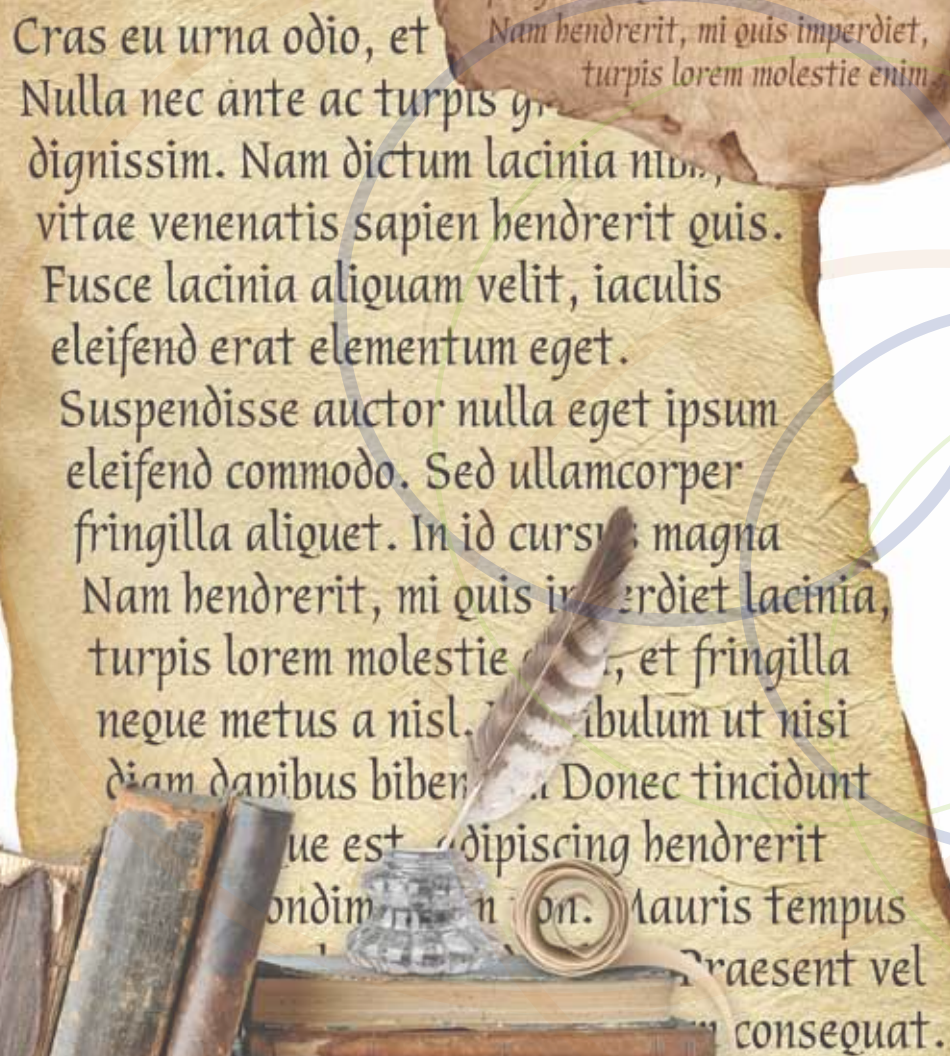 Nam hendrerit, mi quis imperdiet,
turpis lorem molestie enim,
Cras eu urna odio, et
Nulla nec ante ac turpis
dignissim. Nam dictum lacinia
vitae venenatis sapien hendrerit quis.
Fusce lacinia aliquam velit, iaculis
eleifend erat elementum eget.
Suspendisse auctor nulla eget ipsum
eleifend commodo. Sed ullamcorper
fringilla aliquet. In id cursus magna
Nam hendrerit, mi quis imperdiet lacinia,
turpis lorem molestie et fringilla
neque metus a nisl. ut nisi
diam dapibus Donec tincidunt
est adipiscing hendrerit
Mauris tempus
Praesent vel
consequat.